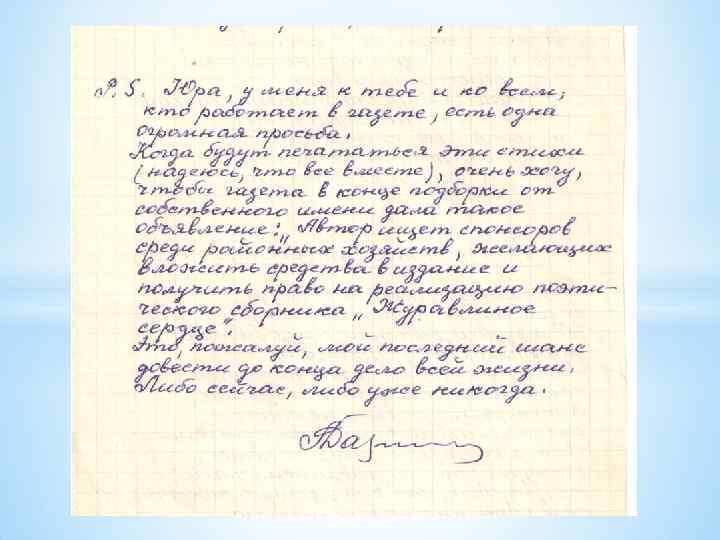 P. S. Юра, у меня к тебе и ко всем,
кто работает в газете, есть одна
огромная просьба.
Когда будут печататься эти стихи
(надеюсь, что все вместе), очень хочу,
чтобы газета в конце подборки от
собственного имени дала такое
объявление: „Автор ищет спонсоров
среди районных хозяйств, желающих
вложить средства в издание и
получить право на реализацию поэти-
ческого сборника „Журавлиное
сердце".
Это, пожалуй, мой последний шанс
довести до конца дело всей жизни.
Либо сейчас, либо уже никогда.